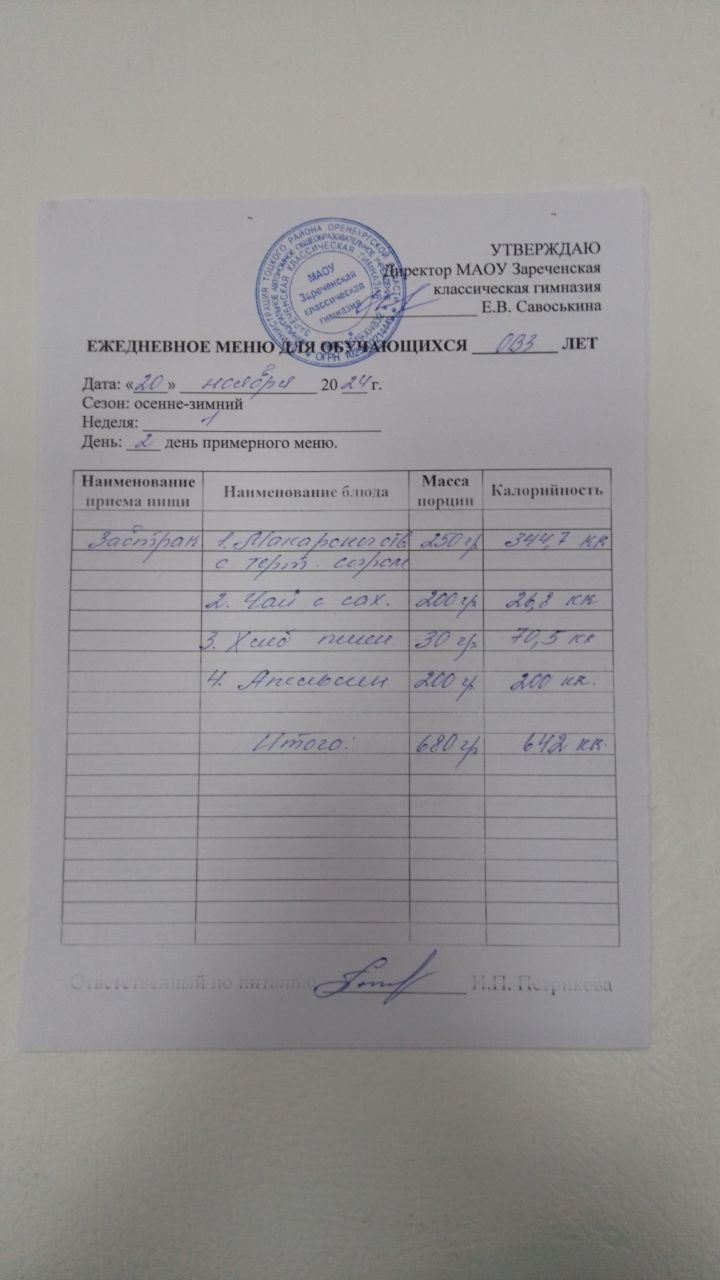 УТВЕРЖДАЮ
Директор МАОУ Зареченская
классическая гимназия
Е.В. Савоськина
МАОУ
Зареченская
классическая
гимназия
ЕЖЕДНЕВНОЕ МЕНЮ ДЛЯ ОБУЧАЮЩИХСЯ ОВЗ ЛЕТ
Дата: «20» ноября 2024 г.
Сезон: осенне-зимний
Неделя: 1
День: 2 день примерного меню.
Наименование приема пищи Наименование блюда Масса порции Калорийность
Завтрак 1. 250 гр 344,7 кк
с терт. сыром
2. Чай с сах. 200 гр 26,8 кк
3. Хлеб пшен. 30 гр 70,5 кк
4. Апельсин 200 гр 200 кк.
Итого: 680 гр 642 кк.
Ответственный по питанию Н.П. Петрикова